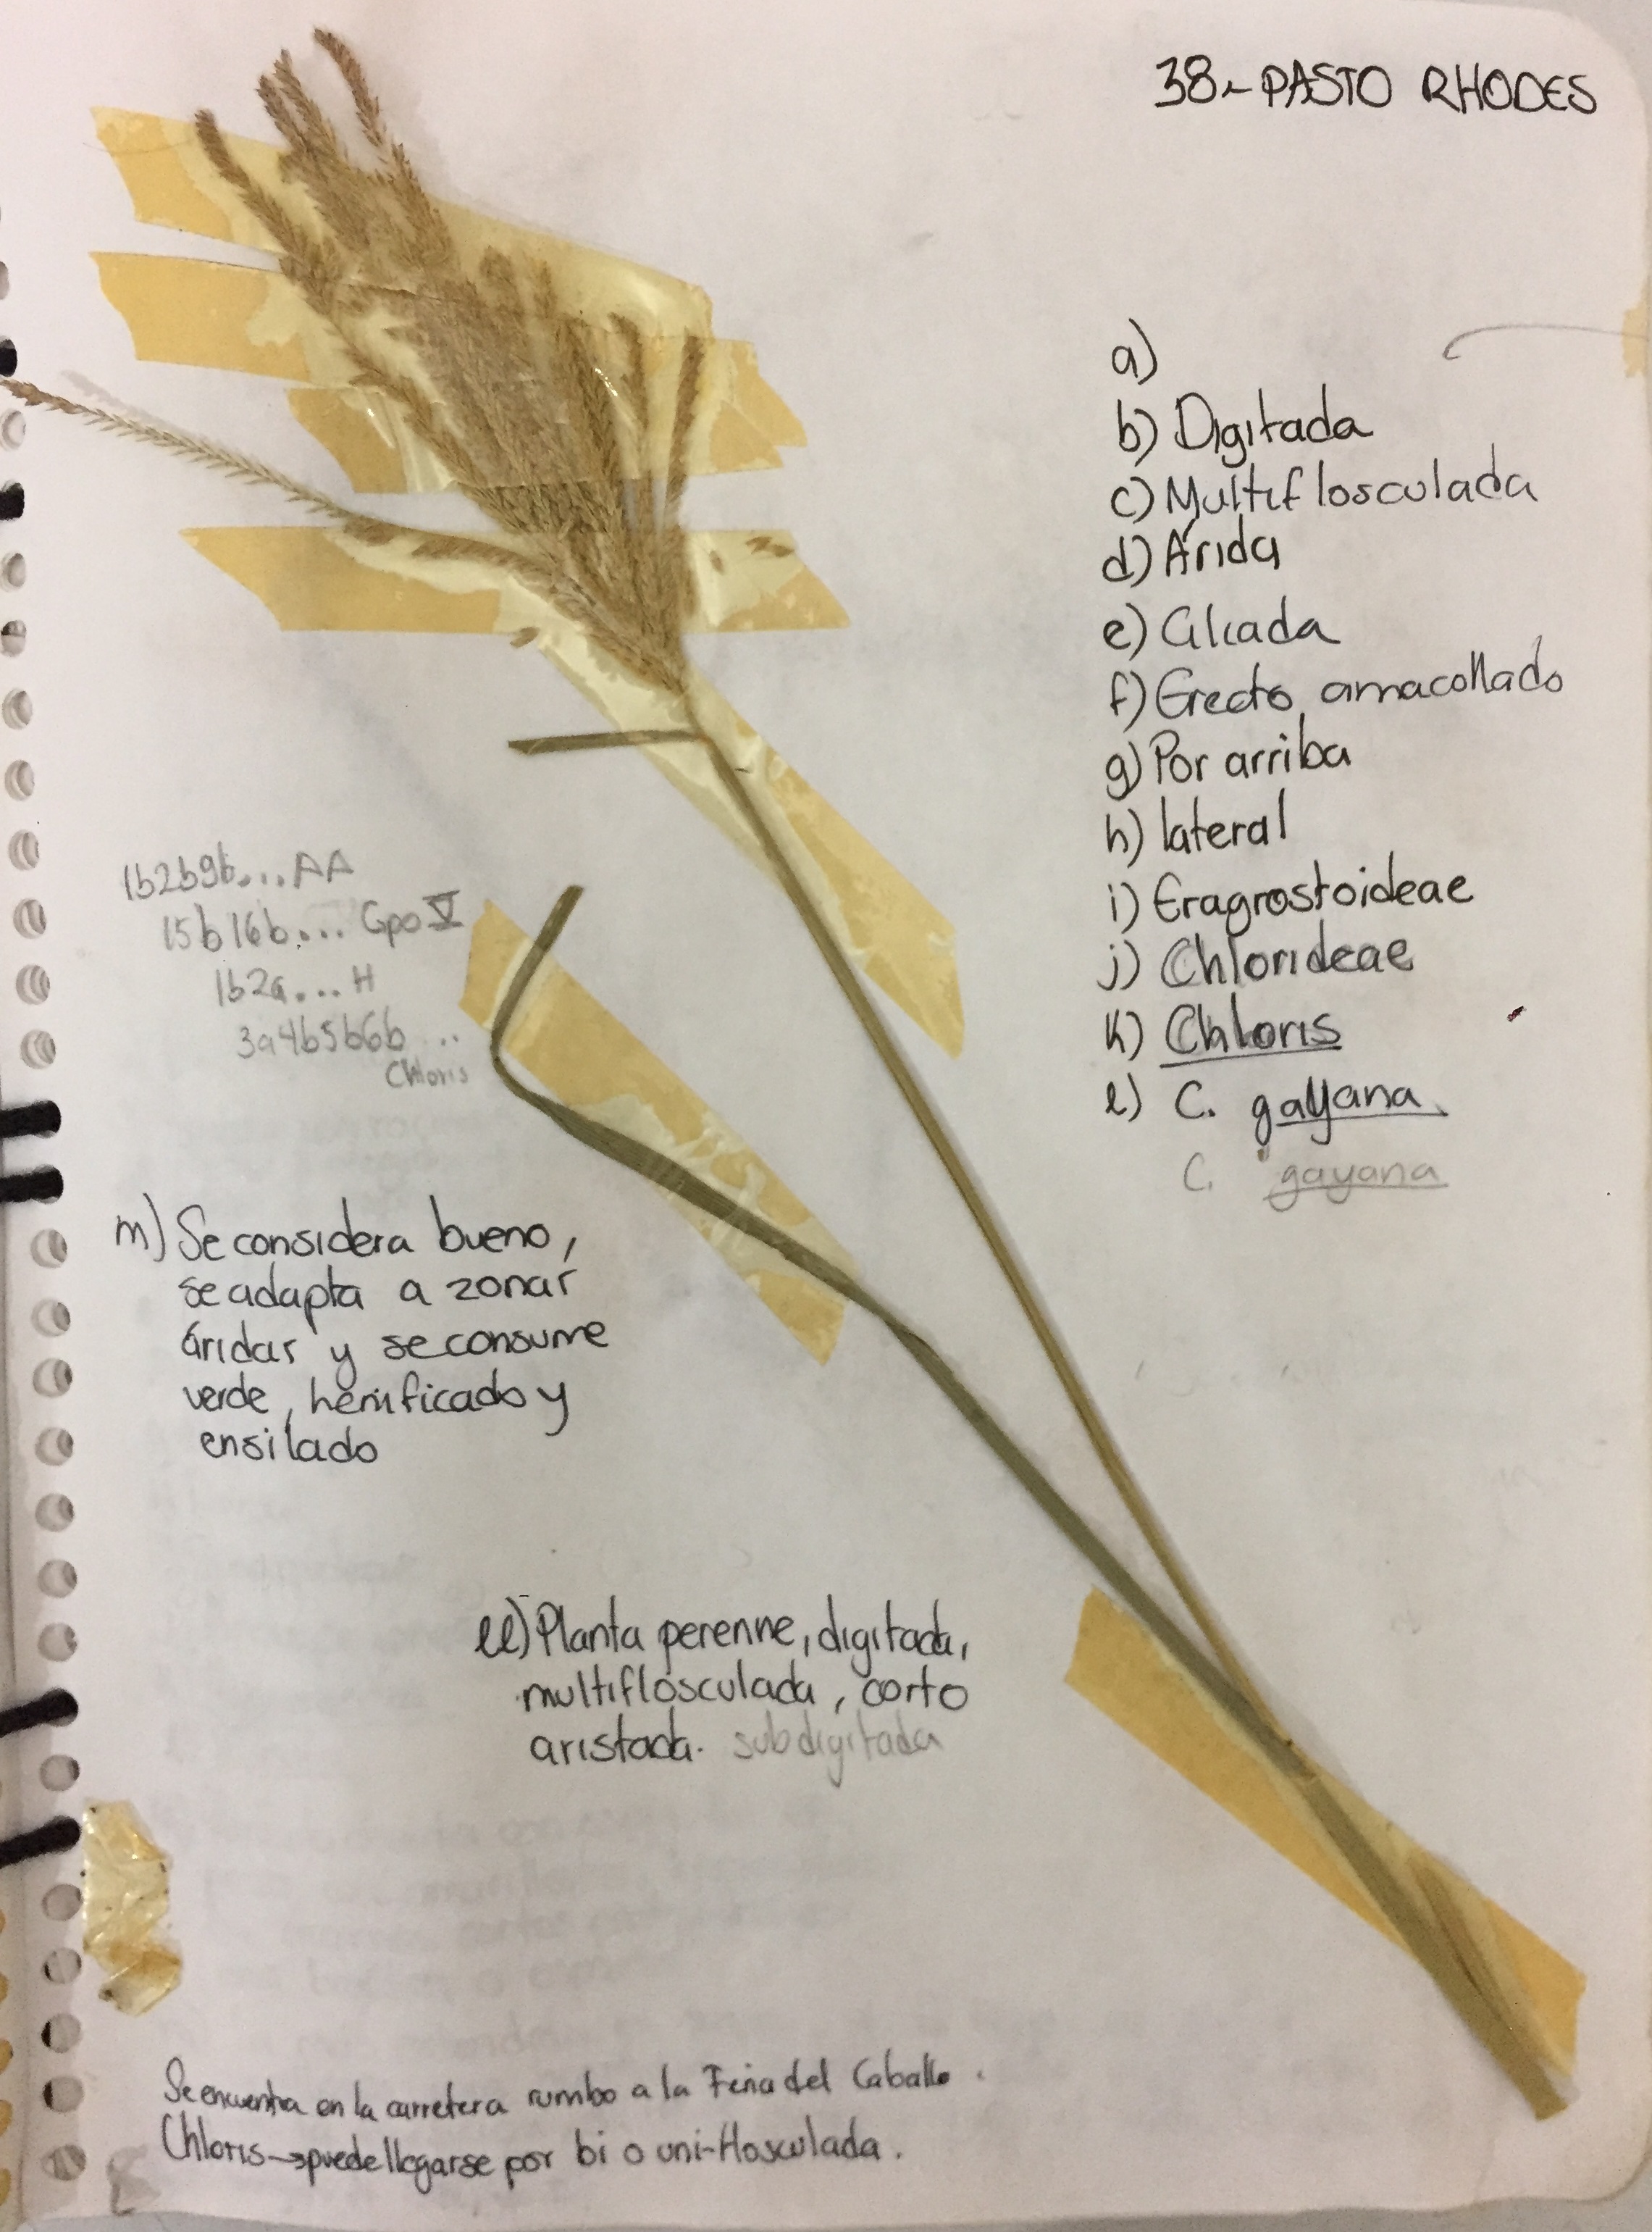 38.- PASTO RHODES
a)
b) Digitada
c) Multiflosculada
d) Árida
e) Gliada
f) Erecto, amacollado
g) Por arriba
h) lateral
i) Eragrostoideae
j) Chlorideae
k) Chloris
l) C. gayana
C. gayana
1b2b9b... AA
15b16b... Gpo V
1b2a... H
3a4b5b6b...
Chloris
m) Se considera bueno,
se adapta a zonas
áridas y se consume
verde, henificado y
ensilado
ll) Planta perenne, digitada,
multiflosculada, corto
aristada. subdigitada
Se encuentra en la carretera rumbo a la Feria del Caballo.
Chloris → puede llegarse por bi o uni-flosculada.